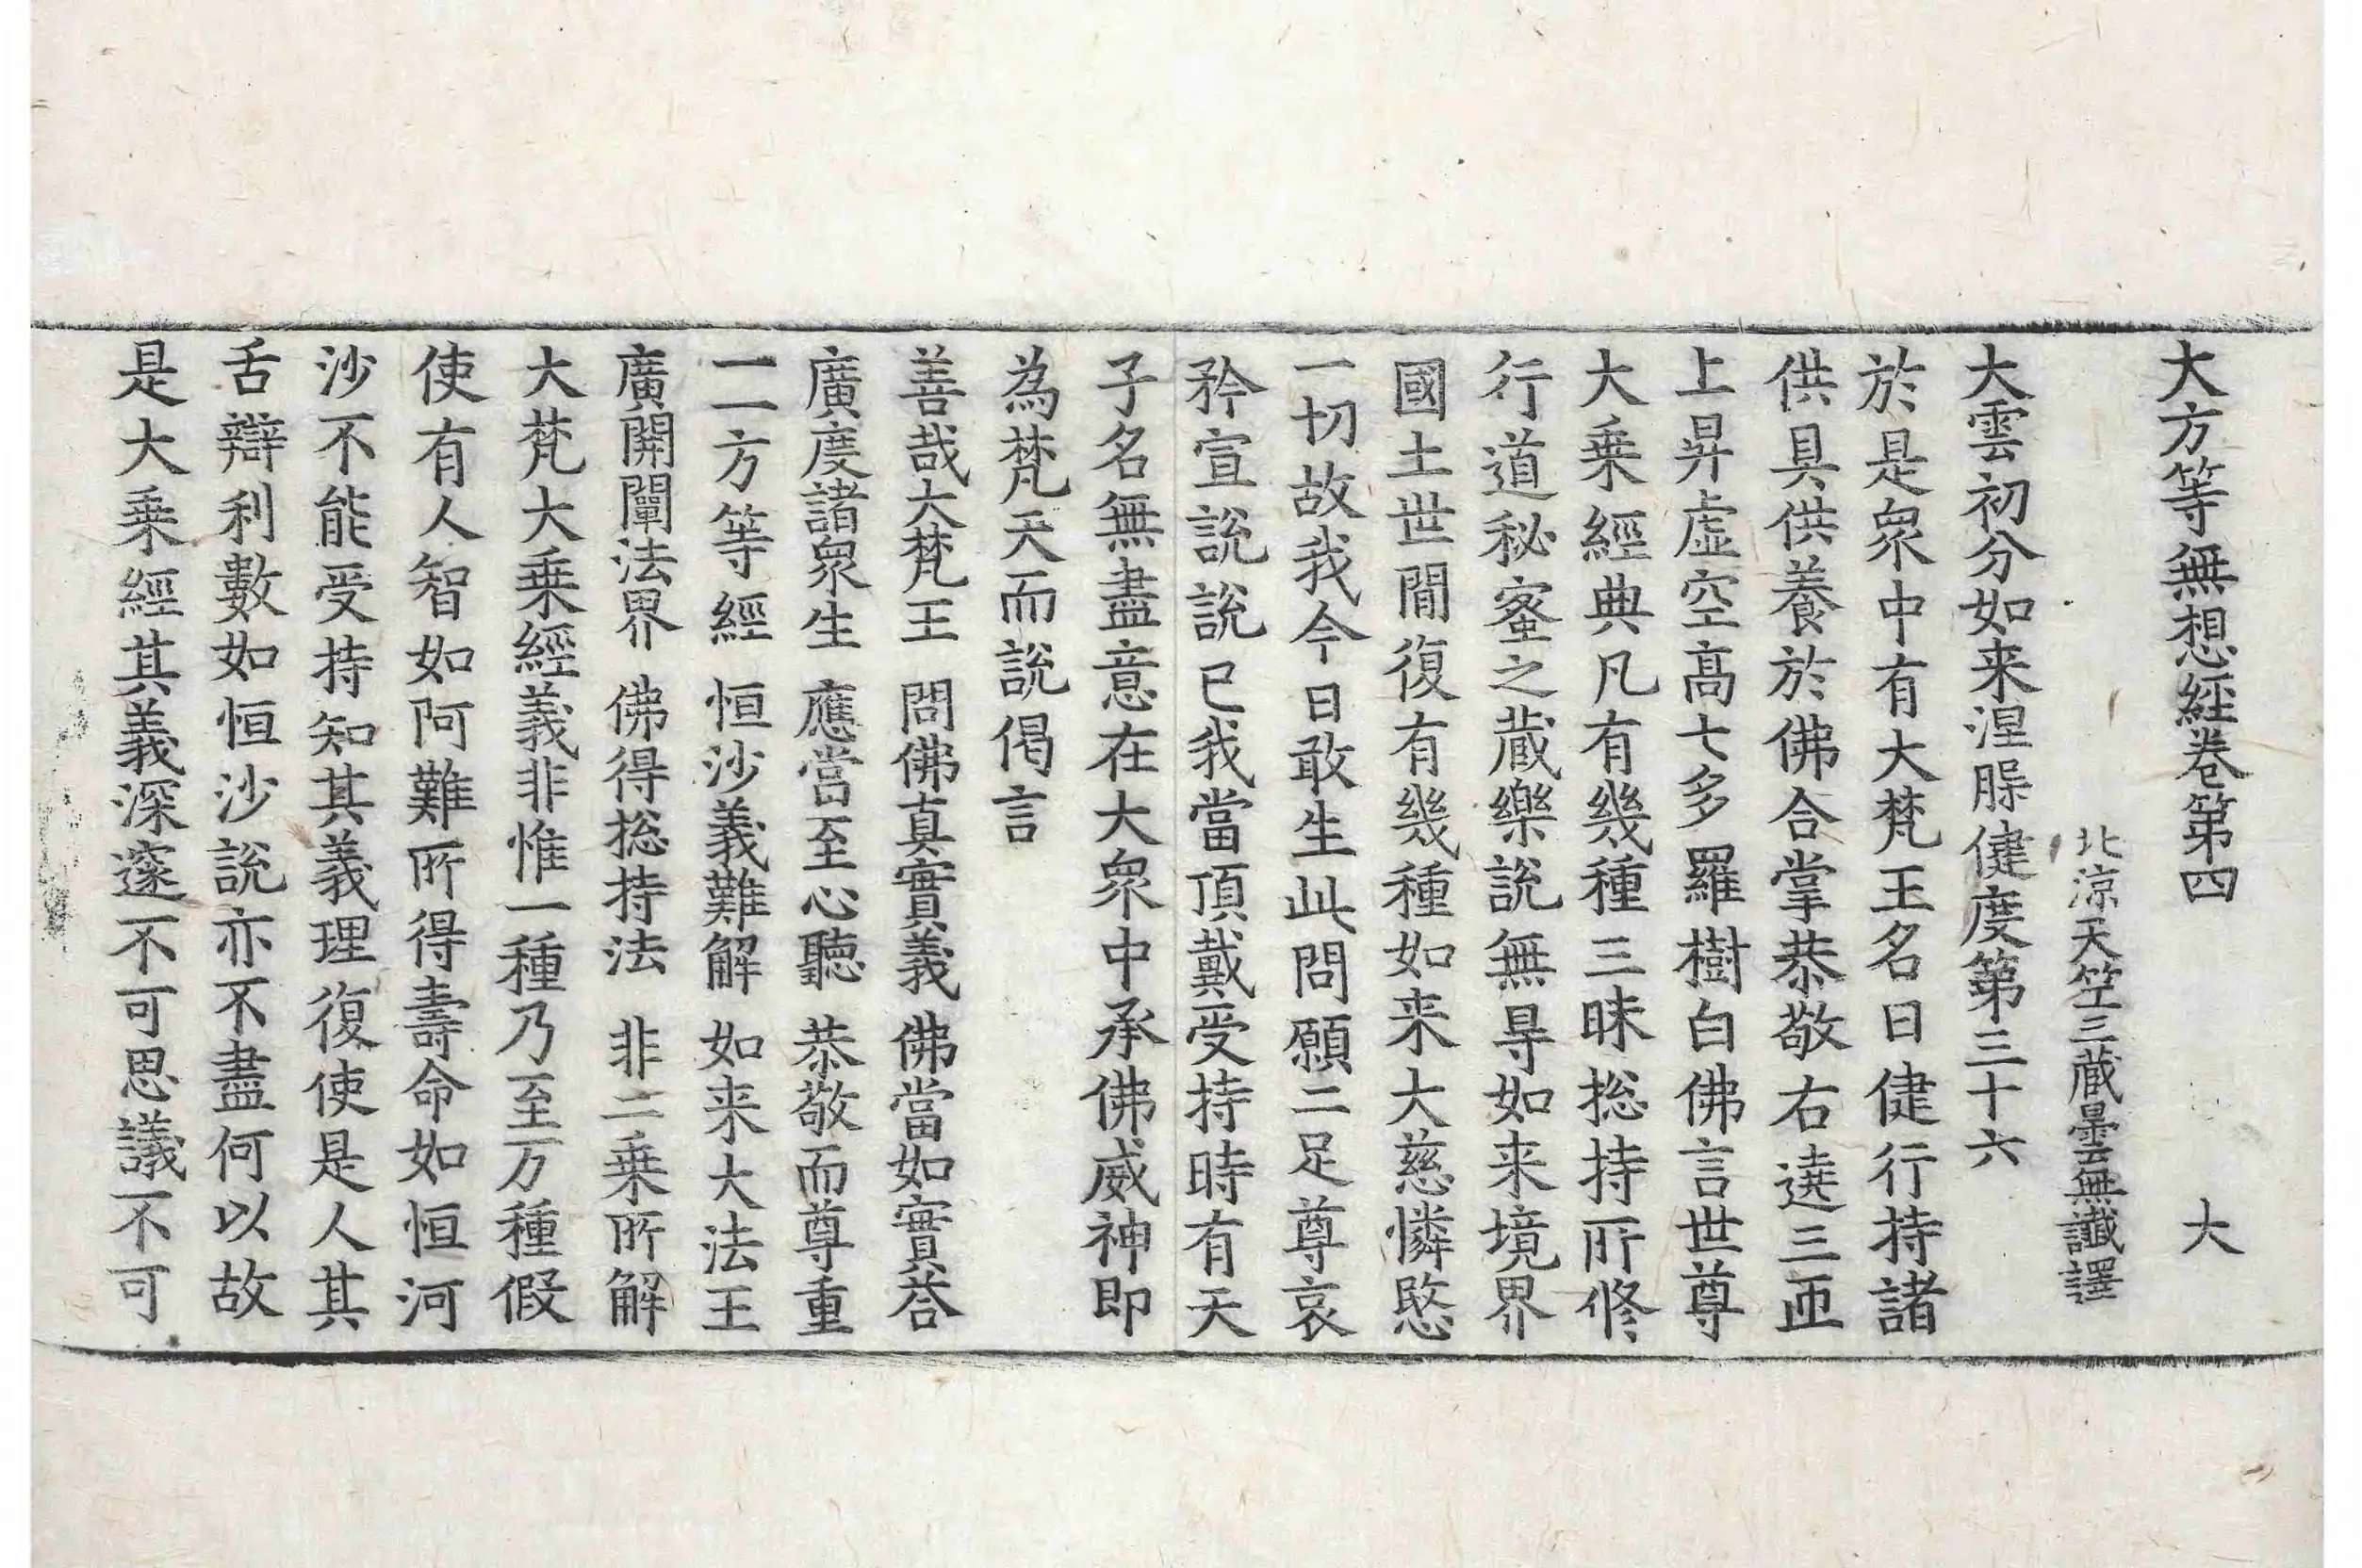 大方等無想經卷第四　大
北涼天竺三蔵曇無讖譯
大雲初分如来涅槃健度第三十六
於是衆中有大梵王名曰健行持諸
供具供養於佛合掌恭敬右遶三匝
上昇虛空髙七多羅樹白佛言世尊
大乗經典凡有幾種三昧捴持所修
行道秘宻之蔵樂說無㝵如来境界
國土世閒復有幾種如来大慈憐愍
一切故我今日敢生此問願二足尊哀
矜宣說說已我當頂戴受持時有天
子名無盡意在大衆中承佛威神即
為梵天而說偈言
善哉大梵王　問佛真實義　佛當如實荅
廣度諸衆生　應當至心聽　恭敬而尊重
一一方等經　恒沙義難解　如来大法王
廣開闡法界　佛得捴持法　非二乗所解
大梵大乗經義非惟一種乃至万種假
使有人智如阿難所得壽命如恒河
沙不能受持知其義理復使是人其
舌辯利數如恒沙說亦不盡何以故
是大乗經其義深邃不可思議不可